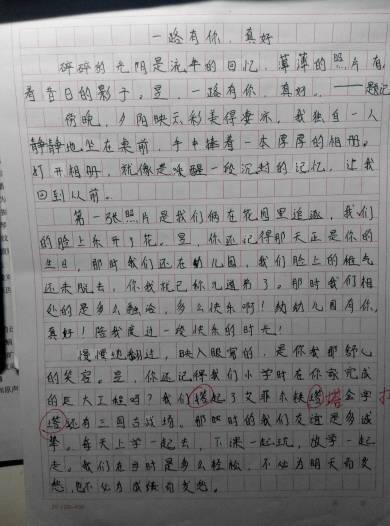 一路有你，真好
碎碎的光阴是流年的回忆，薄薄的照片有
着昔日的影子。星，一路有你，真好。——题记
傍晚，夕阳映云彩美得要冰，我独自一人
静静地坐在桌前，手中捧着一本厚厚的相册。
打开相册，就像是唤醒一段沉封的记忆，让我
回到从前。
第一张照片是我们俩在花园里追逐，我们
的脸上乐开了花。星，你还记得那天正是你的
生日，那时我们还在幼儿园，我们脸上的稚气
还未脱去，你我就已形儿道弟了。那时我们相
处的是多么融洽，多么快乐啊！幼幼儿园有你，
真好！陪我度过一段快乐的时光！
慢慢地翻过，映入眼帘的，是你我那舒心
的笑容。星，你还记得我们小学时在你家完成
的是大工程吗？我们搭起了艾菲尔铁塔金字
塔还有三国古战场。那时的我们友谊是多诚
挚。每天上学一起去，下课一起玩，放学一起
走。我们在当时是多么轻松，不必为明天而发
愁，也不必为成绩而发愁。
塔